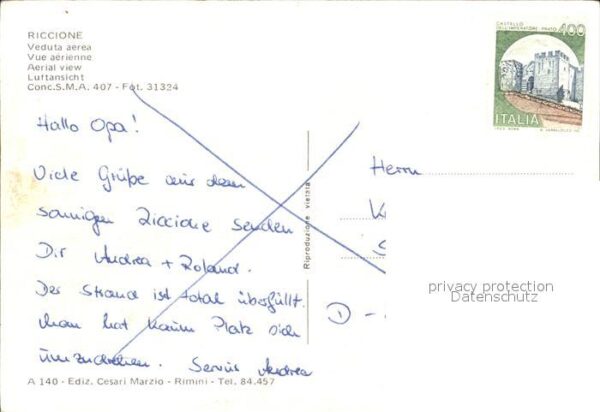 RICCIONE
Veduta aerea
Vue aérienne
Aerial view
Luftansicht
Conc.S.M.A. 407 - Fot. 31324
CASTELLO
DELL'IMPERATORE - PRATO
400
ITALIA
Hallo Opa!
Viele Grüße aus dem
sonnigen Riccione senden
Dir Andrea + Roland.
Der Strand ist total überfüllt.
Man hat kaum Platz sich
umzudrehen. Servus Andrea
Riproduzione vietata
Herrn
K
S
D -
privacy protection
Datenschutz
A 140 - Ediz. Cesari Marzio - Rimini - Tel. 84.457